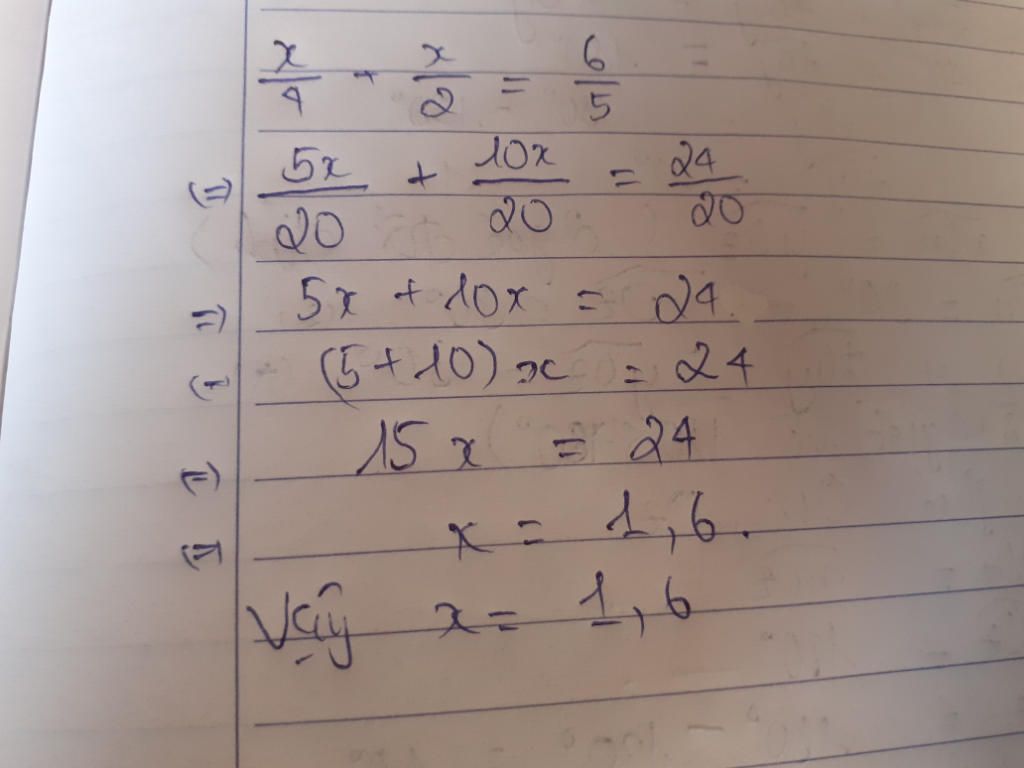 x/4 - x/2 = 6/5 =
(=) 5x/20 + 10x/20 = 24/20
=) 5x + 10x = 24
(= (5+10)x = 24
(=) 15x = 24
(=) x = 1,6.
Vậy x = 1,6